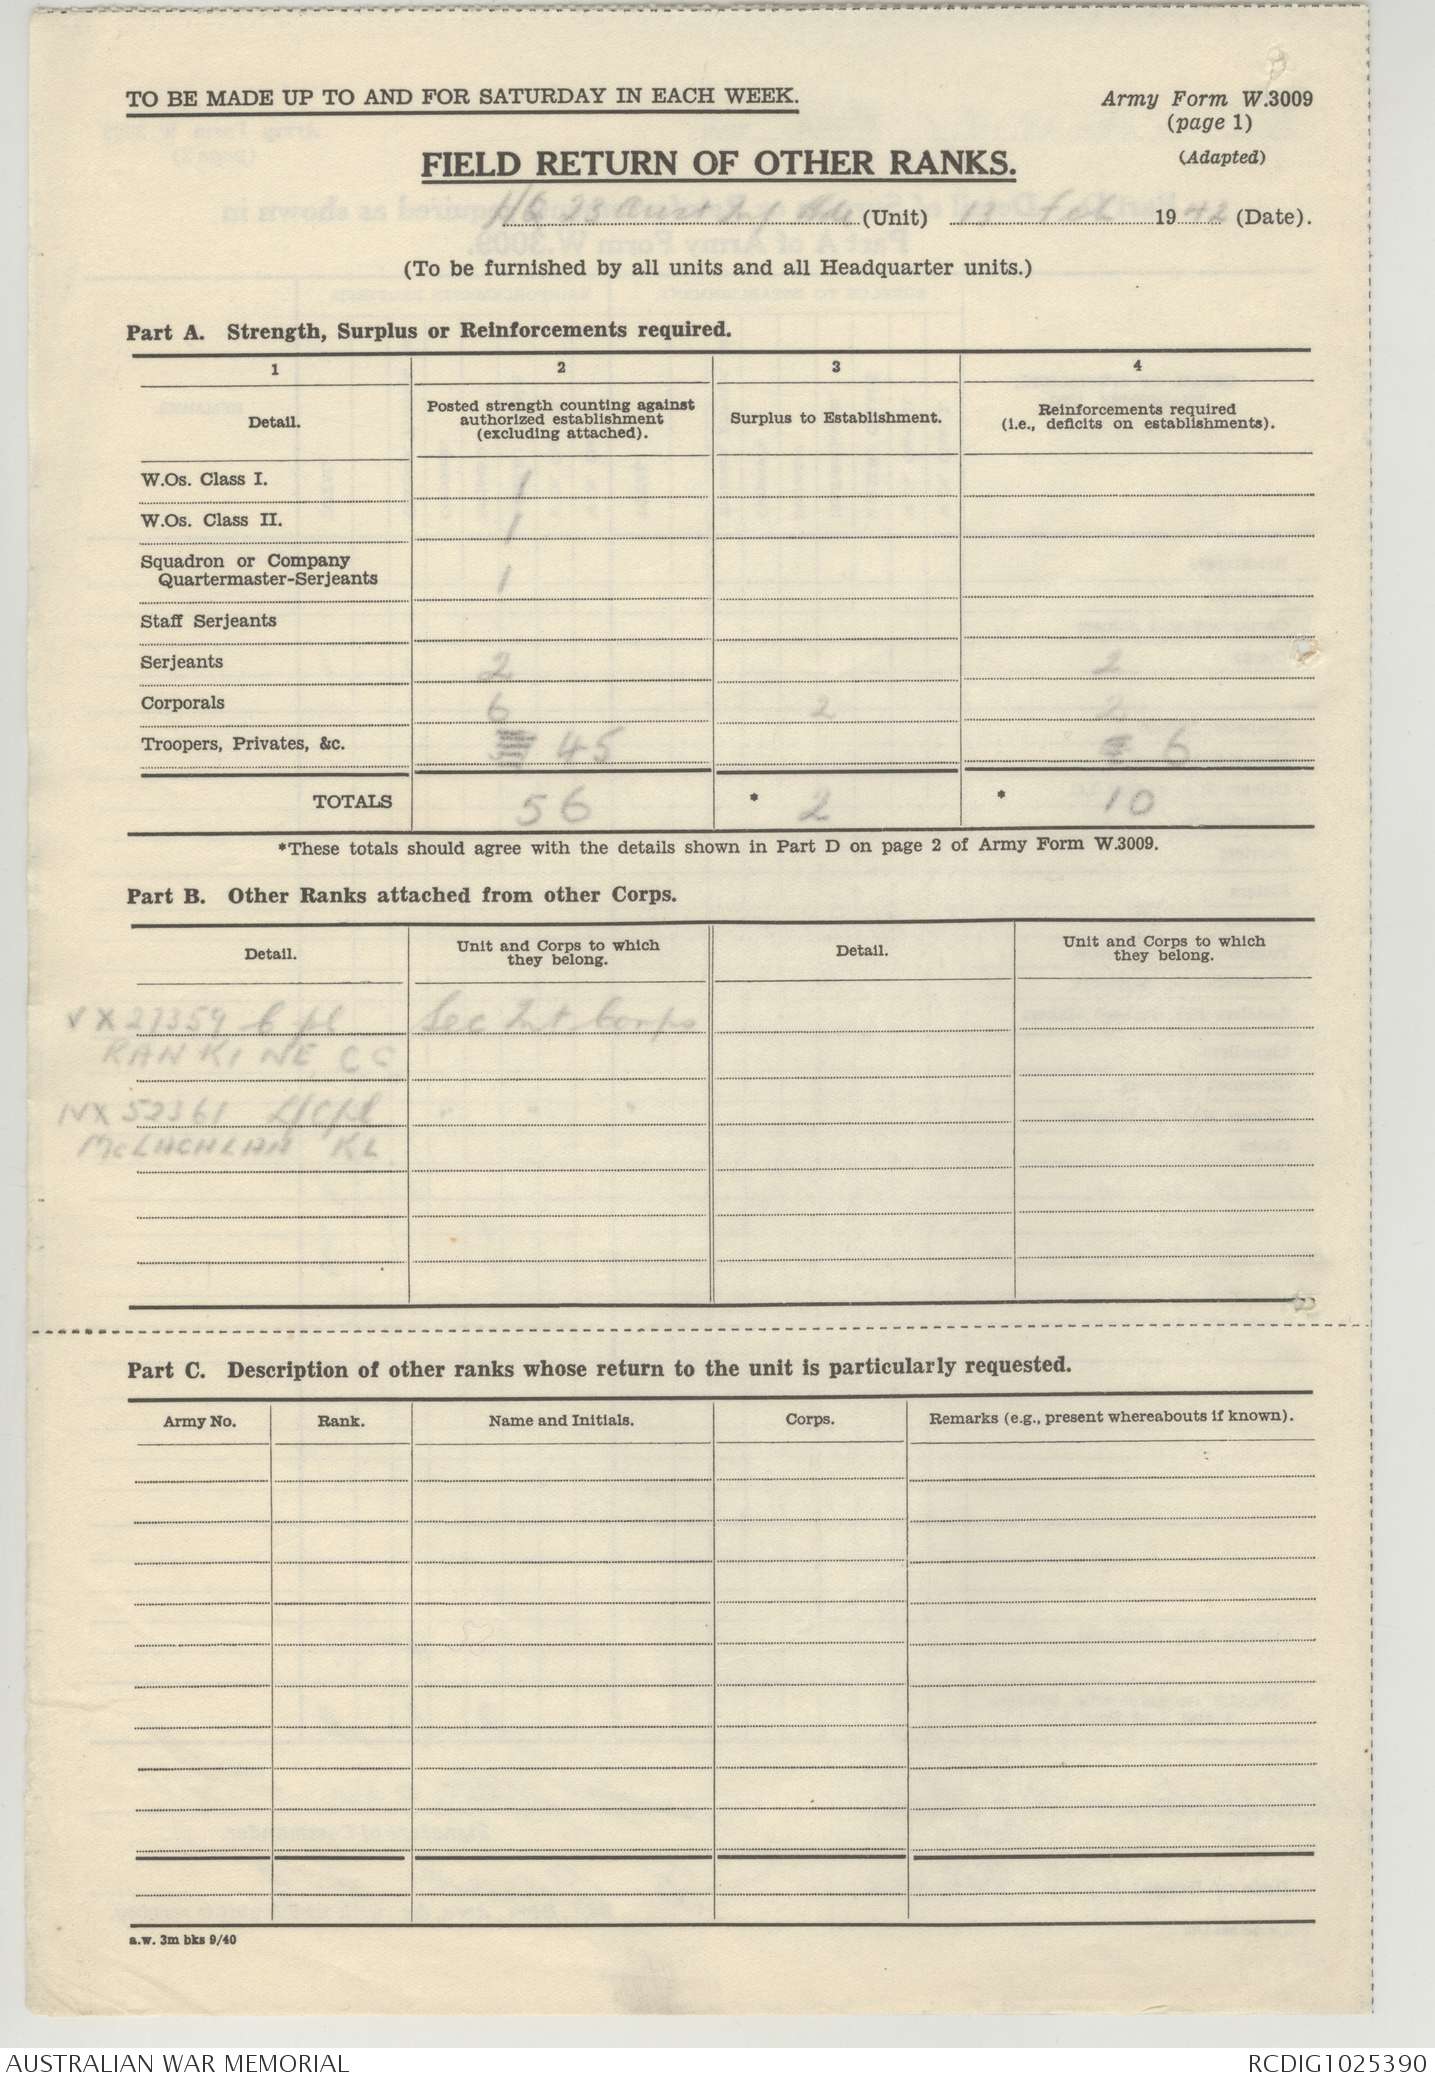 TO BE MADE UP TO AND FOR SATURDAY IN EACH WEEK.
Army Form W.3009
(page 1)
(Adapted)
FIELD RETURN OF OTHER RANKS.
HQ 23 Aust Inf Bde (Unit) 13 Feb 1942 (Date).
(To be furnished by all units and all Headquarter units.)
Part A. Strength, Surplus or Reinforcements required.
1 2 3 4
Detail. Posted strength counting against authorized establishment (excluding attached). Surplus to Establishment. Reinforcements required (i.e., deficits on establishments).
W.Os. Class I. 1
W.Os. Class II. 1
Squadron or Company
Quartermaster-Serjeants 1
Staff Serjeants
Serjeants 2 2
Corporals 6 2 2
Troopers, Privates, &c. 45 6
TOTALS 56 * 2 * 10
*These totals should agree with the details shown in Part D on page 2 of Army Form W.3009.
Part B. Other Ranks attached from other Corps.
Detail. Unit and Corps to which they belong. Detail. Unit and Corps to which they belong.
VX27359 Cpl Sec Int Corps
RANKINE CC
NX52361 L/Cpl " " "
McLACHLAN KL
Part C. Description of other ranks whose return to the unit is particularly requested.
Army No. Rank. Name and Initials. Corps. Remarks (e.g., present whereabouts if known).
a.w. 3m bks 9/40
AUSTRALIAN WAR MEMORIAL RCDIG1025390